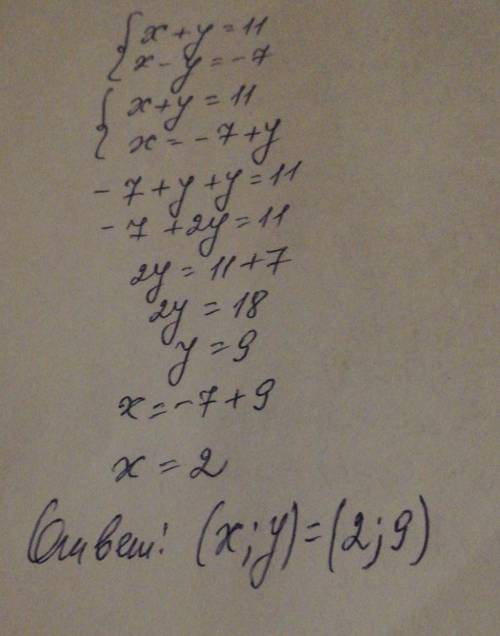 { x + y = 11
x - y = -7
{ x + y = 11
x = -7 + y
-7 + y + y = 11
-7 + 2y = 11
2y = 11 + 7
2y = 18
y = 9
x = -7 + 9
x = 2
Ответ: (x; y) = (2; 9)